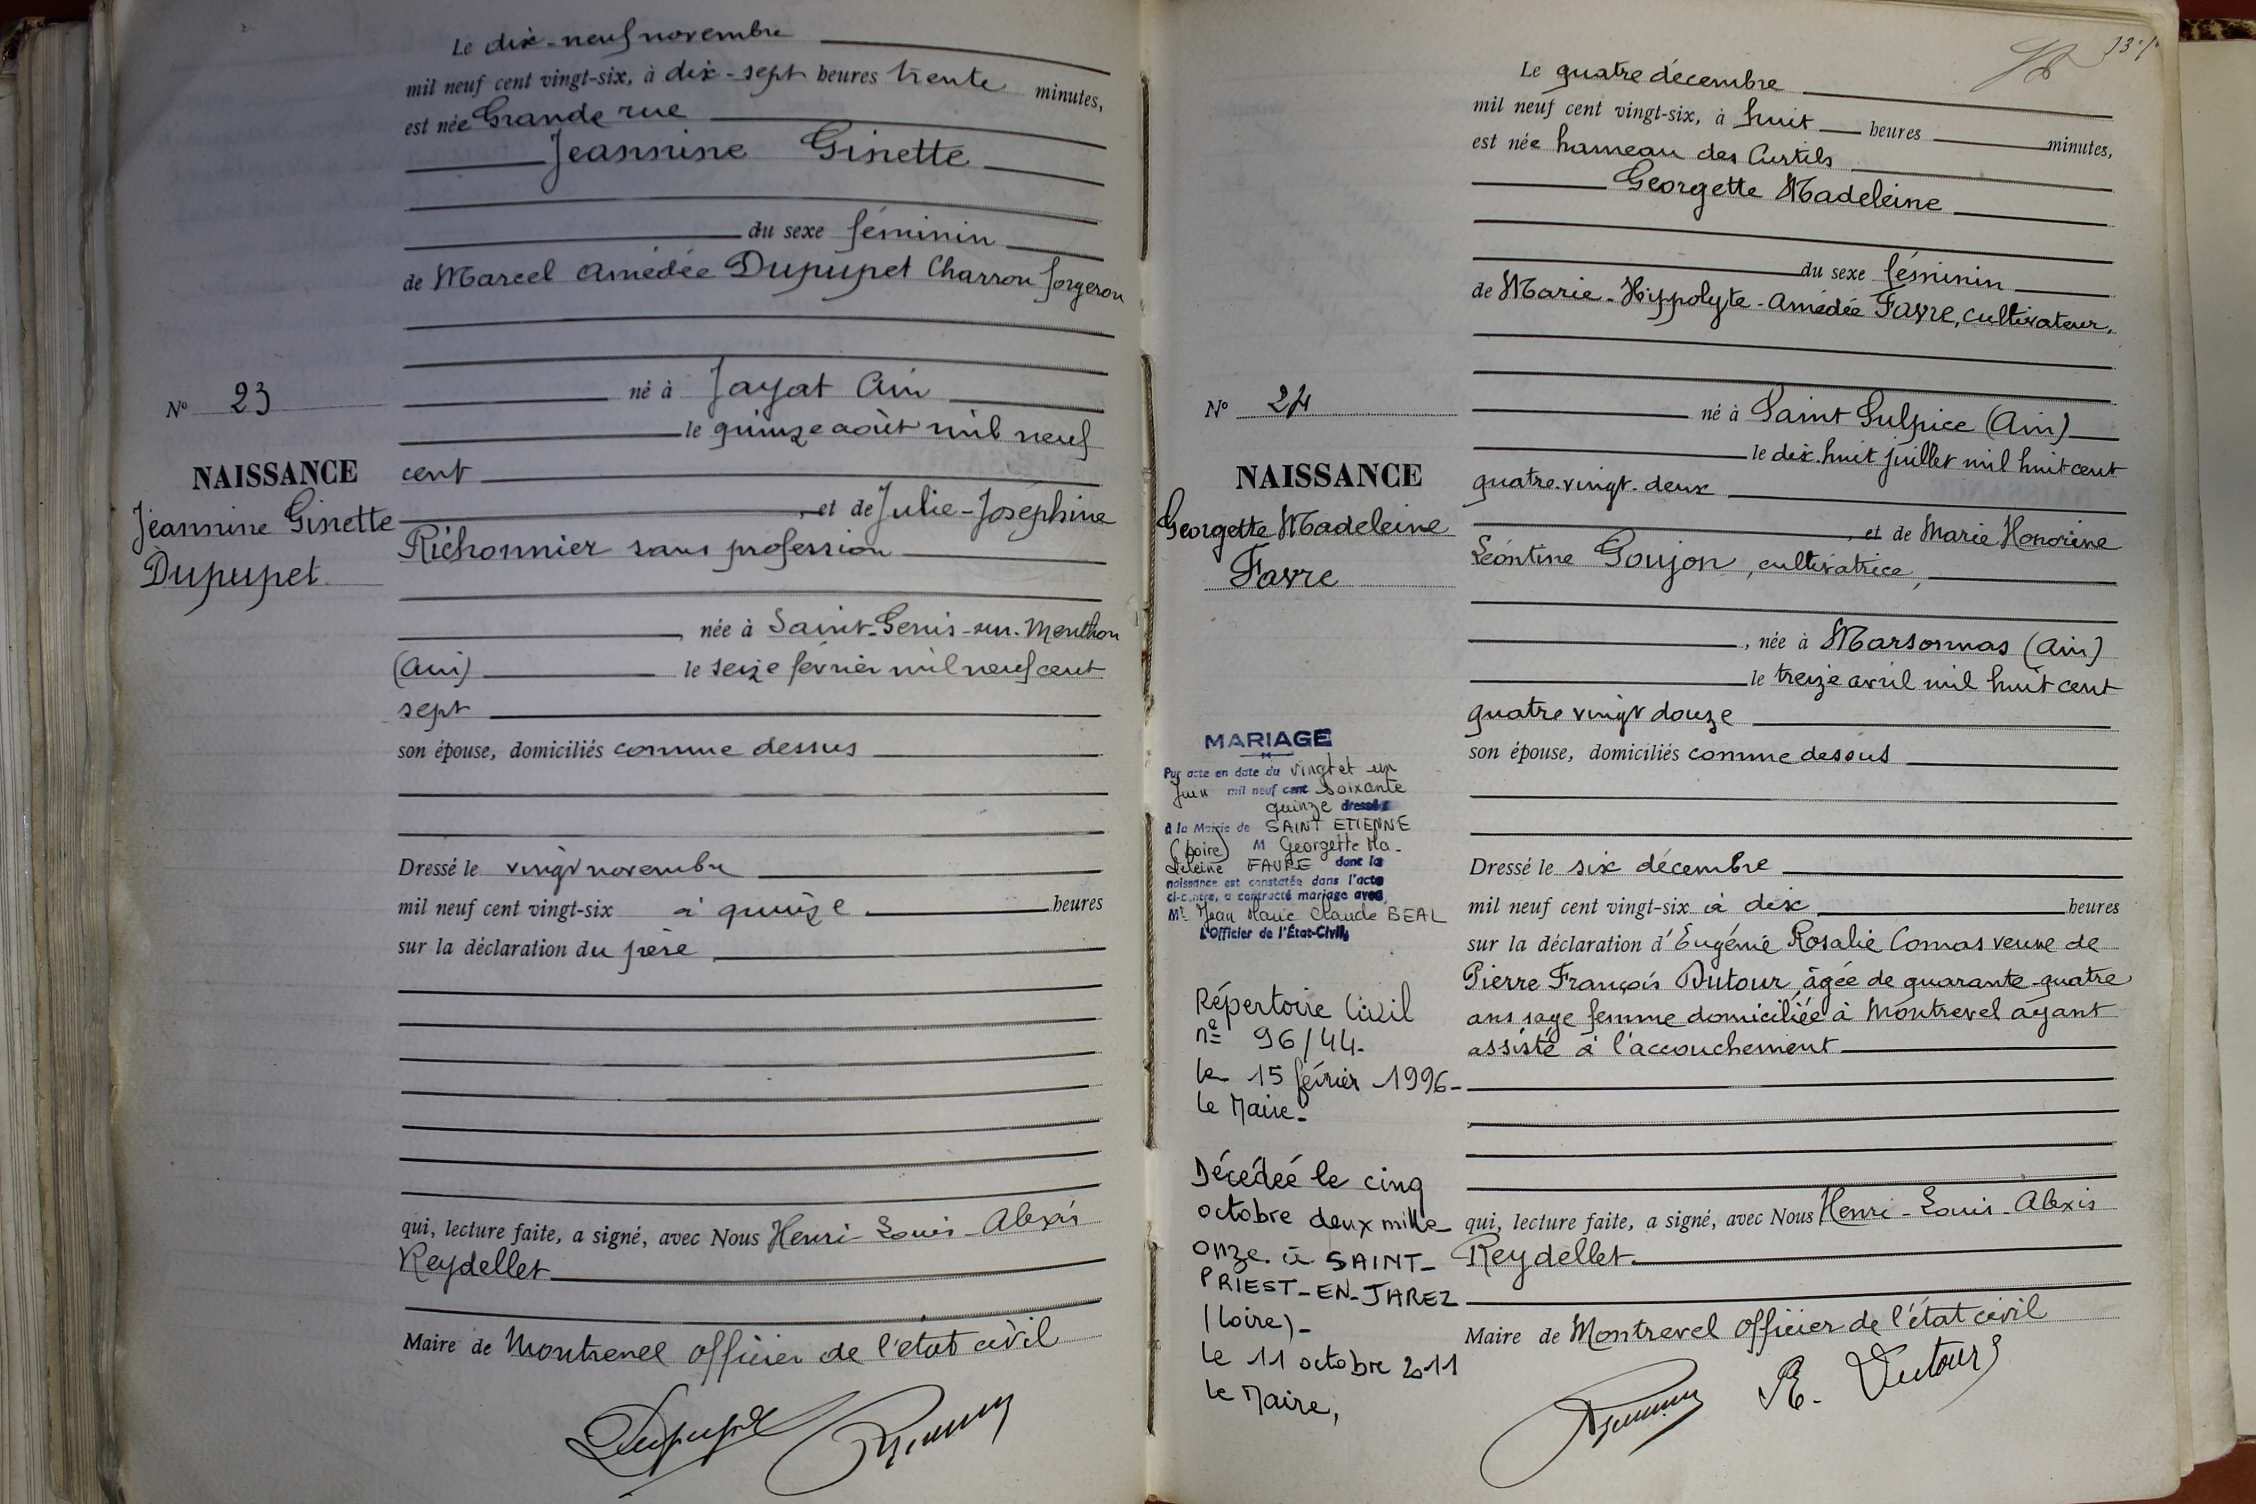 Le dix-neuf novembre
mil neuf cent vingt-six, à dix-sept heures trente minutes,
est née Grande rue
Jeannine Ginette
du sexe féminin
de Marcel Amédée Dupupet Charron forgeron
né à Jayat Ain
le quinze août mil neuf
cent
, et de Julie-Joséphine
Richonnier sans profession
, née à Saint-Genis-sur-Menthon
(Ain) le seize février mil neuf cent
sept
son épouse, domiciliés comme dessus
Dressé le vingt novembre
mil neuf cent vingt-six à quinze heures
sur la déclaration du père
qui, lecture faite, a signé, avec Nous Henri-Louis-Alexis
Reydellet
Maire de Montrevel officier de l'état civil
Dupupet
N° 23
NAISSANCE
Jeannine Ginette
Dupupet
Le quatre décembre
mil neuf cent vingt-six, à huit heures minutes,
est née hameau des Curtils
Georgette Madeleine
du sexe féminin
de Marie-Hippolyte-Amédée Favre, cultivateur,
né à Saint Sulpice (Ain)
le dix-huit juillet mil huit cent
quatre-vingt-deux
, et de Marie Honorine
Léontine Goujon, cultivatrice,
, née à Marsonnas (Ain)
le treize avril mil huit cent
quatre vingt douze
son épouse, domiciliés comme dessus
Dressé le six décembre
mil neuf cent vingt-six à dix heures
sur la déclaration d'Eugénie Rosalie Comas veuve de
Pierre François Dutour, âgée de quarante-quatre
ans sage femme domiciliée à Montrevel ayant
assisté à l'accouchement
qui, lecture faite, a signé, avec Nous Henri-Louis-Alexis
Reydellet
Maire de Montrevel officier de l'état civil
R. Dutour
N° 24
NAISSANCE
Georgette Madeleine
Favre
MARIAGE
Par acte en date du vingt et un
Juin mil neuf cent soixante
quinze dressé
à la Mairie de SAINT ETIENNE
(Loire) M Georgette Ma-
deleine FAVRE dont la
naissance est constatée dans l'acte
ci-contre, a contracté mariage avec
Mr Jean Marie Claude BEAL
L'Officier de l'État-Civil,
Répertoire Civil
n° 96/44-
le 15 février 1996-
Le Maire-
Décédée le cinq
octobre deux mille
onze à SAINT-
PRIEST-EN-JAREZ
(Loire)-
Le 11 octobre 2011
Le Maire,